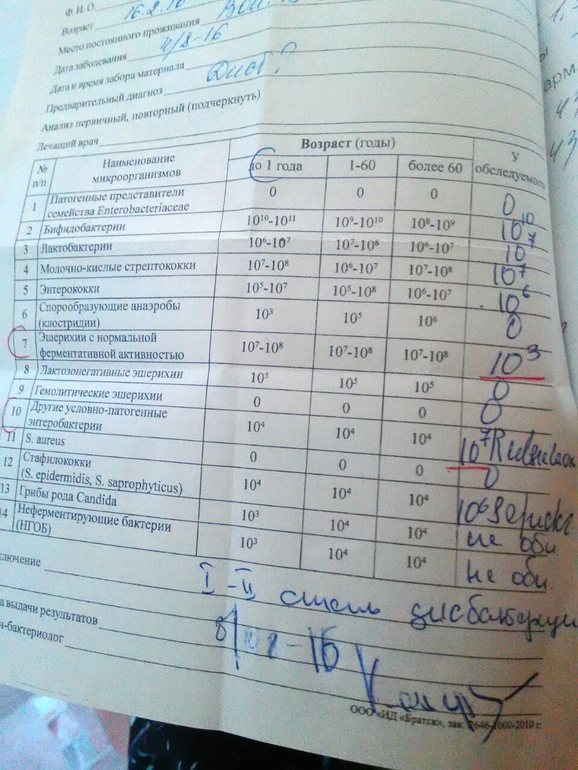 Ф. И. О.
Возраст 16.2.16
Место постоянного проживания
Дата заболевания 4/8-16
Дата и время забора материала
Предварительный диагноз Дисб.?
Анализ первичный, повторный (подчеркнуть)
Лечащий врач
№ п/п Наименование микроорганизмов Возраст (годы) У обследуемого
до 1 года 1-60 более 60
1 Патогенные представители семейства Enterobacteriaceae 0 0 0 0
2 Бифидобактерии 10¹⁰-10¹¹ 10⁹-10¹⁰ 10⁸-10⁹ 10¹⁰
3 Лактобактерии 10⁶-10⁷ 10⁷-10⁸ 10⁶-10⁷ 10⁷
4 Молочно-кислые стрептококки 10⁷-10⁸ 10⁶-10⁷ 10⁷-10⁸ 10⁷
5 Энтерококки 10⁵-10⁷ 10⁵-10⁸ 10⁶-10⁷ 10⁶
6 Спорообразующие анаэробы (клостридии) 10³ 10⁵ 10⁶ 0
7 Эшерихии с нормальной ферментативной активностью 10⁷-10⁸ 10⁷-10⁸ 10⁷-10⁸ 10³
8 Лактозонегативные эшерихии 10⁵ 10⁵ 10⁵ 0
9 Гемолитические эшерихии 0 0 0 0
10 Другие условно-патогенные энтеробактерии 10⁴ 10⁴ 10⁴ 10⁷
11 S. aureus 0 0 0 0
12 Стафилококки (S. epidermidis, S. saprophyticus) 10⁴ 10⁴ 10⁴ 10⁶
13 Грибы рода Candida 10³ 10⁴ 10⁴ не обн
14 Неферментирующие бактерии (НГОБ) 10³ 10⁴ 10⁴ не обн.
ключение I-II степ дисбактериоз
а выдачи результатов 8
ч-бактериолог
ООО «ИД «Братск», зак. 2646-1000-2010 г.